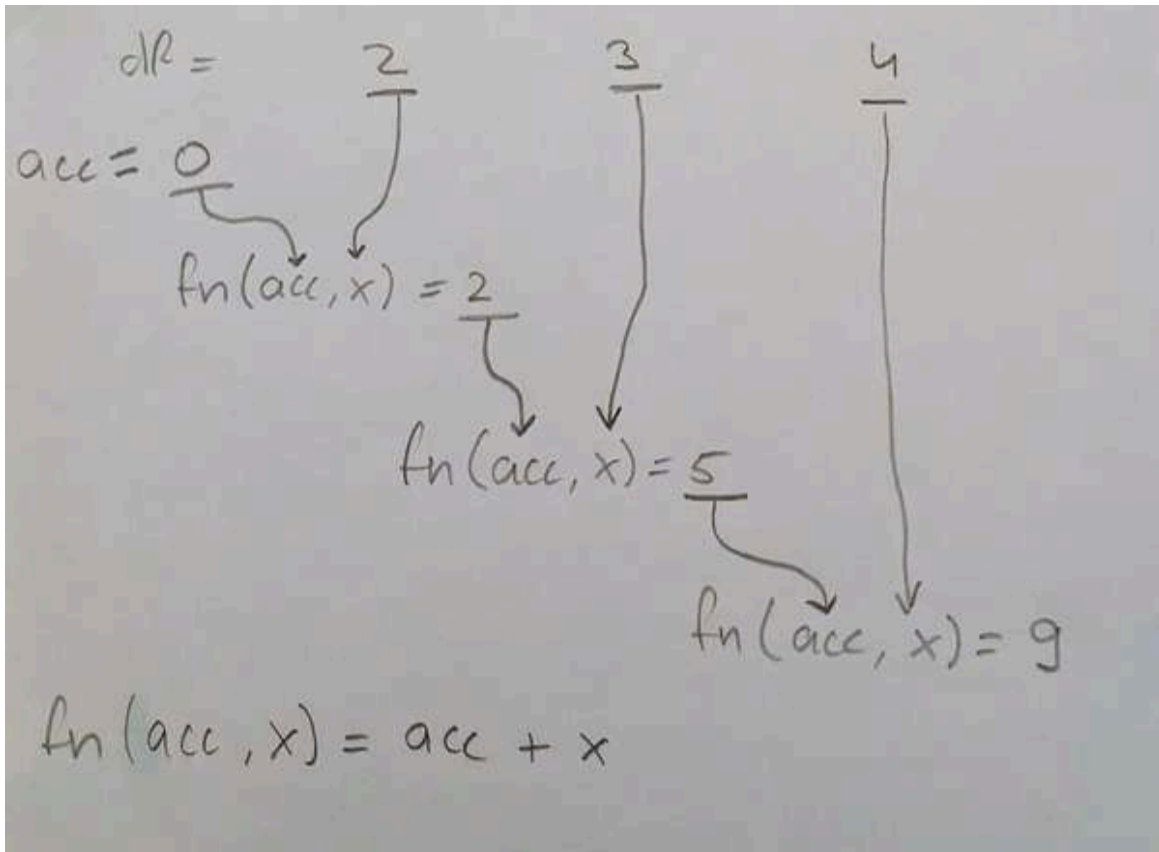 dR = 2 3 4
acc = 0
fn(acc, x) = 2
fn(acc, x) = 5
fn(acc, x) = 9
fn(acc, x) = acc + x